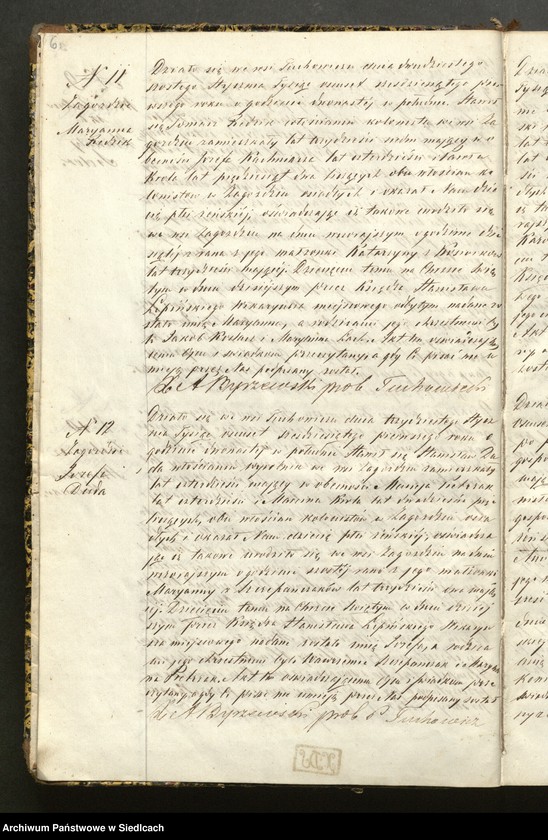 6
N 11
Zagoździe
Maryanna
Działo się we wsi Tuchowiczu dnia dwudziestego
szóstego Stycznia Tysiąc ośmset sześćdziesiątego pier
wszego roku o godzinie dwunastej w południe Stawił
się Tomasz włościanin kolonista we wsi Za
goździu zamieszkały lat trzydzieści siedm mający w o
becności Józefa lat czterdzieści
Króla lat pięćdziesiąt dwa liczących obu włościan ko
lonistów w Zagoździu osiadłych i okazał Nam dziec
ię płci żeńskiej, oświadczając iż takowe urodziło się
we wsi Zagoździu na dniu wczorajszym o godzinie
z rana z jego małżonki Katarzyny z
lat trzydzieści mającej. Dziecięciu temu na Chrzcie Świę
tym w dniu dzisiejszym przez Księdza Stanisława
Łepińskiego Wikaryusza miejscowego odbytym nadane zo
stało imię Maryanna, a rodzicami jego chrzestnemi by
li Jakób i Maryanna Akt ten oświadczają
cemu tym i świadkom przeczytany a gdy ci pisać nie u
mieją przez Nas podpisany został
X A Byrzewski prob Tuchowicki
N 12
Zagoździe
Józefa
Duda
Działo się we wsi Tuchowiczu dnia trzydziestego Stycz
nia Tysiąc ośmset sześćdziesiątego pierwszego roku o
godzinie dwunastej w południe Stawił się Stanisław Du
da włościanin wyrobnik we wsi Zagoździu zamieszkały
lat czterdzieści mający w obecności Macieja
lat czterdzieści i Marcina Króla lat
liczących, obu włościan kolonistów w Zagoździu osia
dłych i okazał Nam dziecię płci żeńskiej, oświadcza
jąc iż takowe urodziło się we wsi Zagoździu na dniu
wczorajszym o godzinie szóstej rano z jego małżonki
Maryanny z Szczepańczaków lat trzydzieści mają
cej. Dziecięciu temu na Chrzcie Świętym w dniu dzisiej
szym przez Księdza Stanisława Łepińskiego Wikaryu
sza miejscowego nadane zostało imię Józefa a rodzica
mi jego chrzestnemi byli Wawrzeniec Szczepańczak i Maryan
na Akt ten oświadczającemu tym i świadkom prze
czytany a gdy ci pisać nie umieją przez Nas podpisany został
X A Byrzewski prob P Tuchowicz
Archiwum Państwowe w Siedlcach